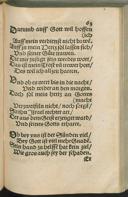 63
Darumb auff Gott wil hoffen
ich
Auff mein verdienst nicht bawen
Auff jn mein hertz sol lassen sich
Und seiner güte trawen
Die mir zusagt sein werdes wort
Das ist mein trost und trewer hort
Des wil ich allzeit harren.
Und ob es wert bis in die nacht
Und wider an den morgen
Doch sol mein hertz an Gottes
macht
Verzweifeln nicht noch sorgen
So thu Israel rechter art
Der aus dem Geist erzeuget ward
Und seines Gotts erharre.
Ob bey uns ist der Sünden viel
Bey Gott ist viel mehr Gnade
Sein hand zu helffen hat kein ziel
Wie gros auch sey der schaden
Er